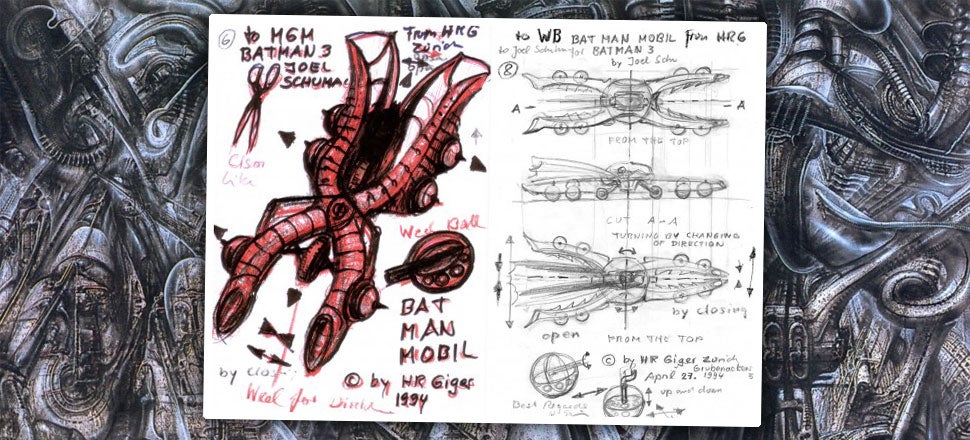 6
to MGM
BATMAN 3
JOEL
SCHUMA
From HRG
Zürich
by clos
Weel Ball
BAT
MAN
MOBIL
© by HR Giger
1994
to WB BAT MAN MOBIL from HRG
to Joel for BATMAN 3
by Joel Schu
8
A
A
FROM THE TOP
CUT A-A
TURNING BY CHANGING
OF DIRECTION
by closing
open
FROM THE TOP
© by HR Giger Zürich
April 27. 1994
5
up and down
Best Regards